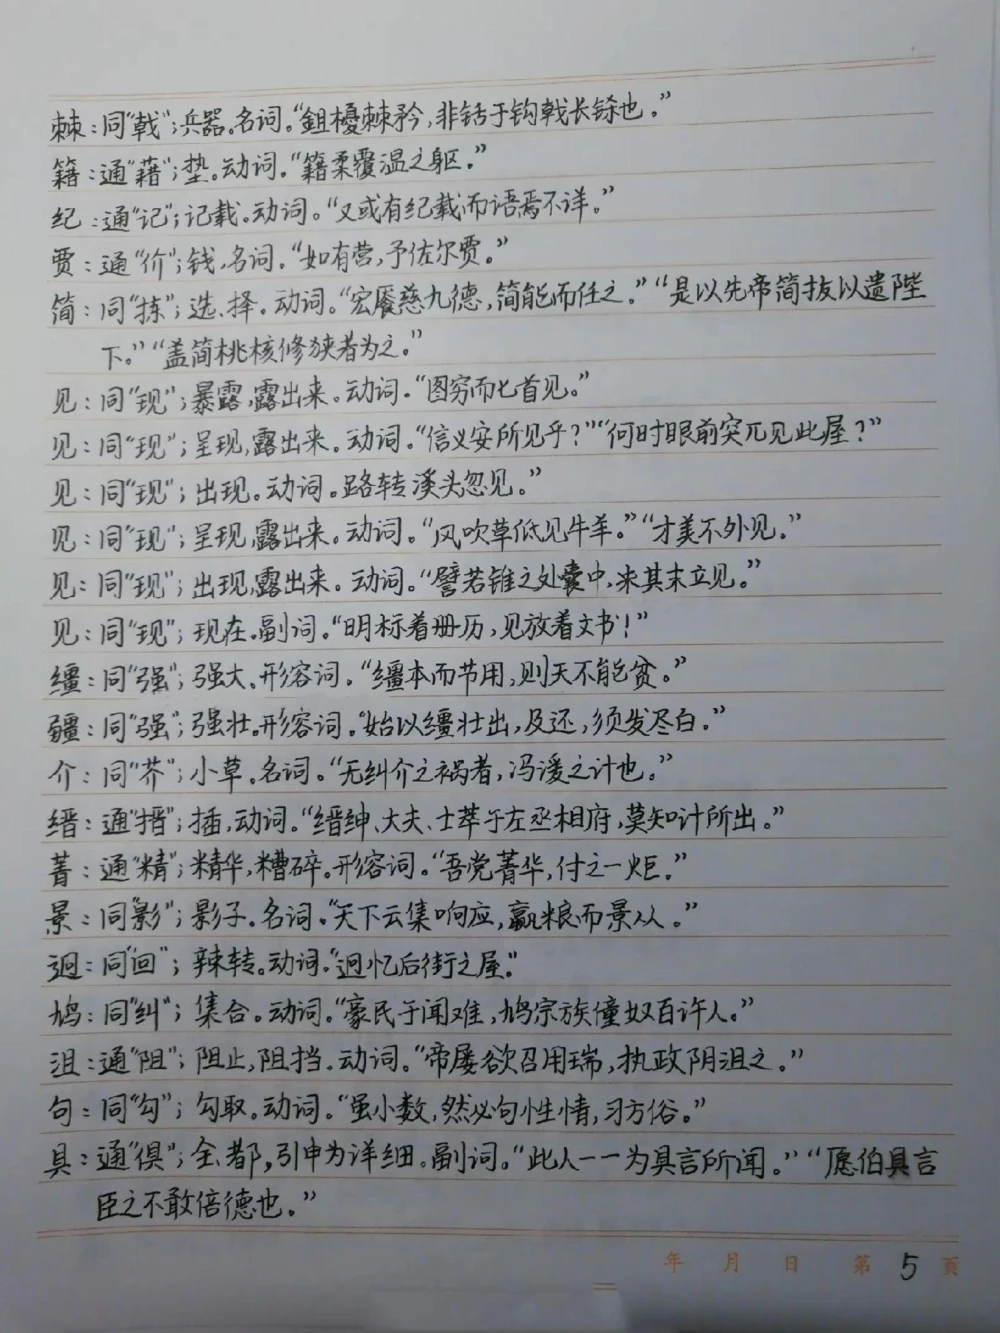 棘：同“戟”；兵器。名词。“鉏櫌棘矜，非铦于钩戟长铩也。”
籍：通“藉”；垫。动词。“籍柔覆温之躯。”
纪：通“记”；记载。动词。“又或有纪载而语焉不详。”
贾：通“价”；钱，名词。“如有营，予佐尔贾。”
简：同“拣”；选、择。动词。“宏餍慈九德，简能而任之。”“是以先帝简拔以遗陛
下。”“盖简桃核修狭者为之。”
见：同“现”；暴露，露出来。动词。“图穷而匕首见。”
见：同“现”；呈现，露出来。动词。“信义安所见乎？”“何时眼前突兀见此屋？”
见：同“现”；出现。动词。路转溪头忽见。”
见：同“现”；呈现，露出来。动词。“风吹草低见牛羊。”“才美不外见。”
见：同“现”；出现，露出来。动词。“譬若锥之处囊中，末其末立见。”
见：同“现”；现在。副词。“明标着册历，见放着文书！”
缰：同“强”；强大。形容词。“缰本而节用，则天不能贫。”
疆：同“强”；强壮。形容词。“始以缰壮出，及还，须发尽白。”
介：同“芥”；小草。名词。“无纠介之祸者，冯谖之计也。”
缙：通“搢”；插，动词。“缙绅、大夫、士萃于左丞相府，莫知计所出。”
菁：通“精”；精华，糟碎。形容词。“吾党菁华，付之一炬。”
景：同“影”；影子。名词。“天下云集响应，赢粮而景从。”
迥：同“回”；辣转。动词。“迥忆后街之屋。”
鸠：同“纠”；集合。动词。“豪民于闻难，鸠宗族僮奴百许人。”
沮：通“阻”；阻止，阻挡。动词。“帝屡欲召用瑞，执政阴沮之。”
句：同“勾”；勾取。动词。“虽小数，然必句性情，习方俗。”
具：通“俱”；全、都，引申为详细。副词。“此人一一为具言所闻。”“愿伯具言
臣之不敢倍德也。”
年 月 日 第 5 頁